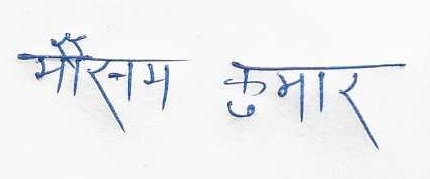 मौसम कुमार